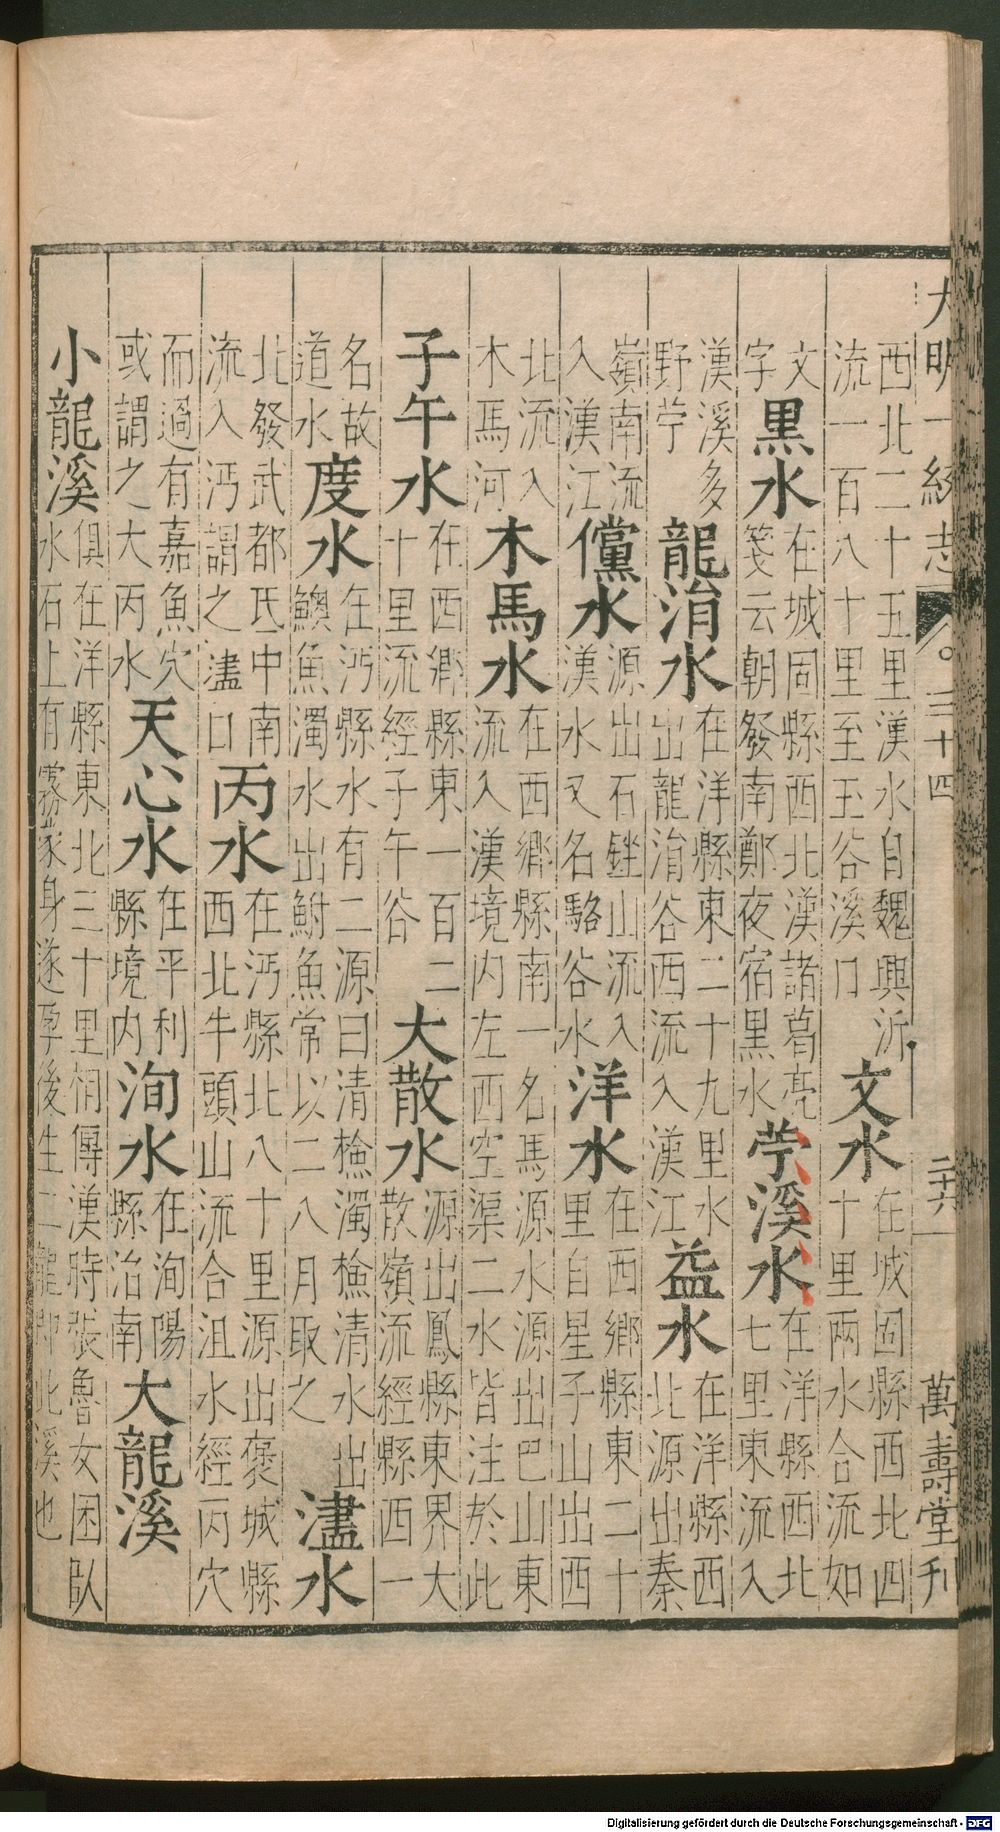 大明一統志 三十四 二十六 萬壽堂刊
西北二十五里漢水自魏興沂
流一百八十里至玉谷溪口
文水
在城固縣西北四
十里兩水合流如
文
字
黑水
在城固縣西北漢諸葛亮
箋云朝發南鄭夜宿黑水
苧溪水
在洋縣西北
七里東流入
漢溪多
野苧
龍淯水
在洋縣東二十九里水
出龍淯谷西流入漢江
益水
在洋縣西
北源出秦
嶺南流
入漢江
儻水
源出石銼山流入
漢水又名駱谷水
洋水
在西鄉縣東二十
里自星子山出西
北流入
木馬河
木馬水
在西鄉縣南一名馬源水源出巴山東
流入漢境内左西空渠二水皆注於此
子午水
在西鄉縣東一百二
十里流經子午谷
大散水
源出鳳縣東界大
散嶺流經縣西一
名故
道水
度水
在沔縣水有二源曰清檢濁檢清水出
鱮魚濁水出鮒魚常以二八月取之
濜水
北發武都氐中南
流入沔謂之濜口
丙水
在沔縣北八十里源出褒城縣
西北牛頭山流合沮水經丙穴
而過有嘉魚穴
或謂之大丙水
天心水
在平利
縣境内
洵水
在洵陽
縣治南
大龍溪
小龍溪
俱在洋縣東北三十里相傳漢時張魯女困臥
水石上有霧蒙身遂孕後生二龍即此溪也
Digitalisierung gefördert durch die Deutsche Forschungsgemeinschaft - DFG